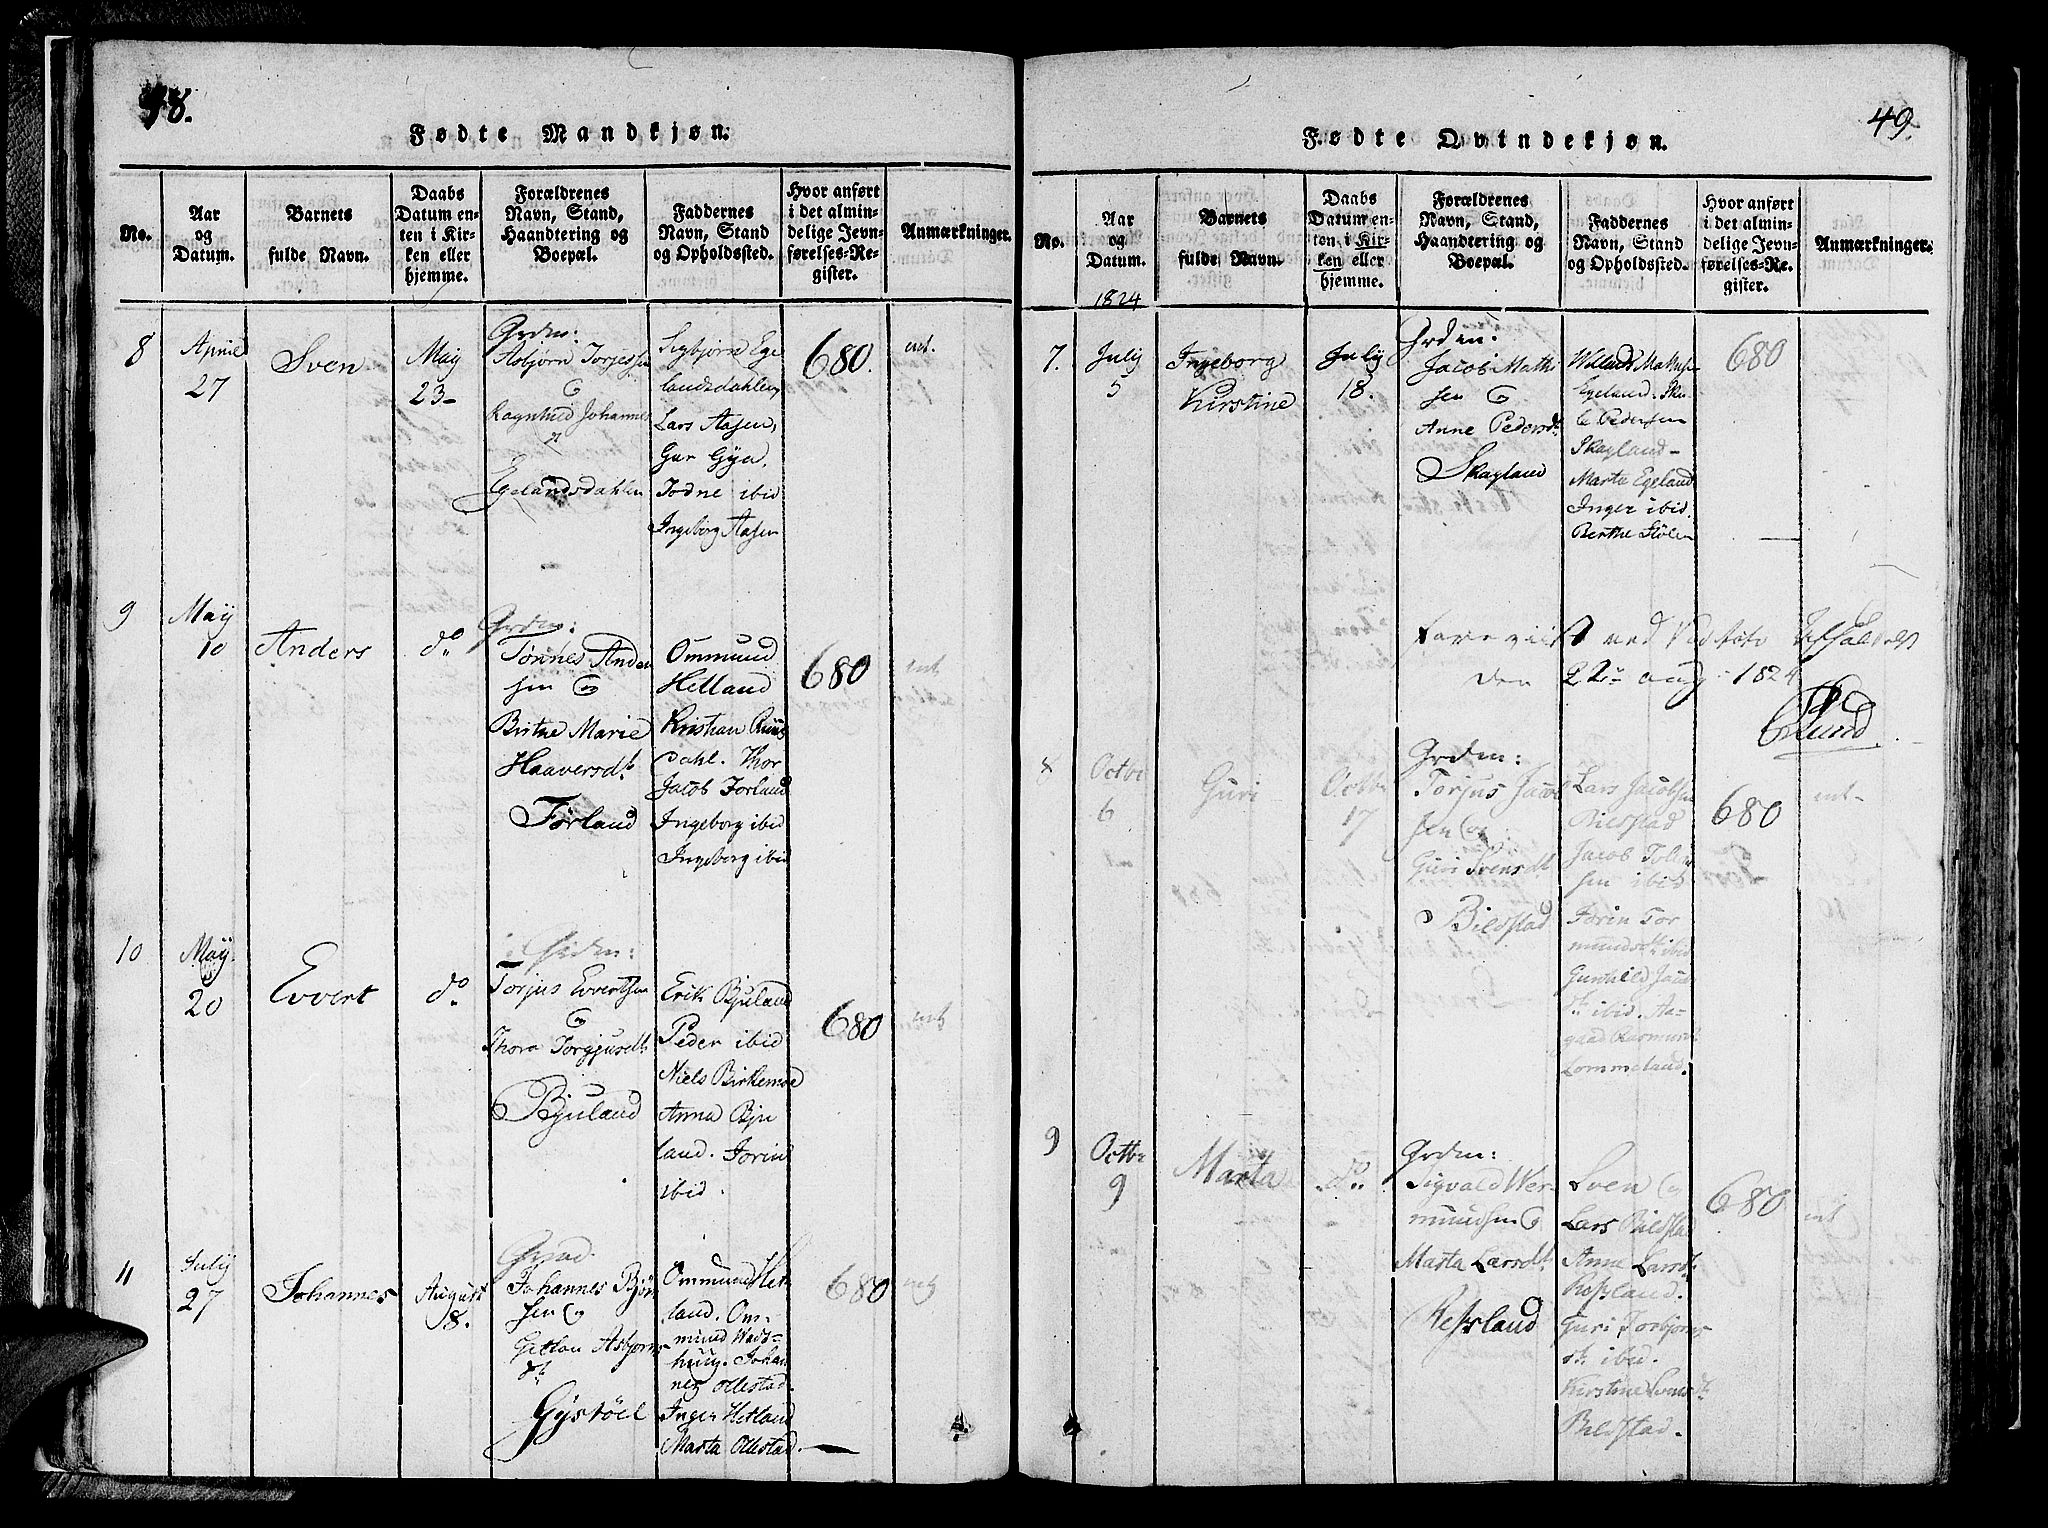 48.
Fødte Mandkjøn.
No.
Aar
og
Datum.
Barnets
fulde Navn.
Daabs
Datum en-
ten i Kir-
ken eller
hjemme.
Forældrenes
Navn, Stand,
Haandtering og
Boepæl.
Faddernes
Navn, Stand
og Opholdssted.
Hvor anført
i det almin-
delige Jevn-
førelses-Re-
gister.
Anmærkninger.
8
April
27
Sven
May
23-
Grdm:
Asbjørn Torjessen
&
Ragnhild Johannes
dt
Egelandsdahlen
Sigbjørn Ege
landsdahlen,
Lars Aasen,
Gur Gya,
Jodne ibid
Ingeborg Aasen
680.
int.
9
May
10
Anders
do
Grdm:
Tønnes Ander
sen &
Birthe Marie
Haaversdt.
Førland
Ommund
Helland
Kristian Ruus
dahl. Thor
Jacob Førland
Ingeborg ibid
Ingeborg ibid
680
int
10
May
20
Evvert
do.
Grdm:
Torjus Evvertsen
&
Thora Torgjusdt.
Bjuland
Erik Bjuland
Peder ibid
Niels Birkemoe
Anna Bju
land. Jorin
ibid.
680
int
11
July
27
Johannes
August
8.
Johannes Bjørn
sen &
Asbjørns
dt.
Gystøel
Ommund Het
land. Om-
mund
Johan
nes Ollestad.
Inger Hetland
Marta Ollestad.
680
int
49.
Fødte Qvindekjøn.
No.
Aar
og
Datum.
Barnets
fulde Navn.
Daabs
Datum en-
ten i Kir-
ken eller
hjemme.
Forældrenes
Navn, Stand,
Haandtering og
Boepæl.
Faddernes
Navn, Stand
og Opholdssted.
Hvor anført
i det almin-
delige Jevn-
førelses-Re-
gister.
Anmærkninger.
1824
7.
July
5
Ingeborg
Kirstine
July
18.
Grdm:
Jacob Mathi
sen &
Anne Pedersdt.
Skagland
Egeland.
Pedersen
Skagland-
Marta Egeland
Inger ibid.
Berthe Stølen
680
foreviist ved
den 22de aug. 1824
Lund
8
Octbr
6
Guri
Octbr
17
Grdm:
Torjus Jacob
sen &:
Guri Svensdt.
Bildstad
Lars Jacobsen
Bildstad
Jacob
sen ibid
Jorin Tor
mundsdt. ibid
Gunhild Jacobs
dt. ibid. Aa-
gaad Rasmusdt.
Lommeland.
680
int-
9
Octbr
9
Marta
do.
Grdm:
Sigvald Wer-
mundsen &
Marta Larsdt.
Refsland
Sven &
Lars Bildstad
Anne Larsdt.
Refsland.
Guri Torbjørns
dt. ibid.
Kirstine Svensdt.
Bildstad.
680
int